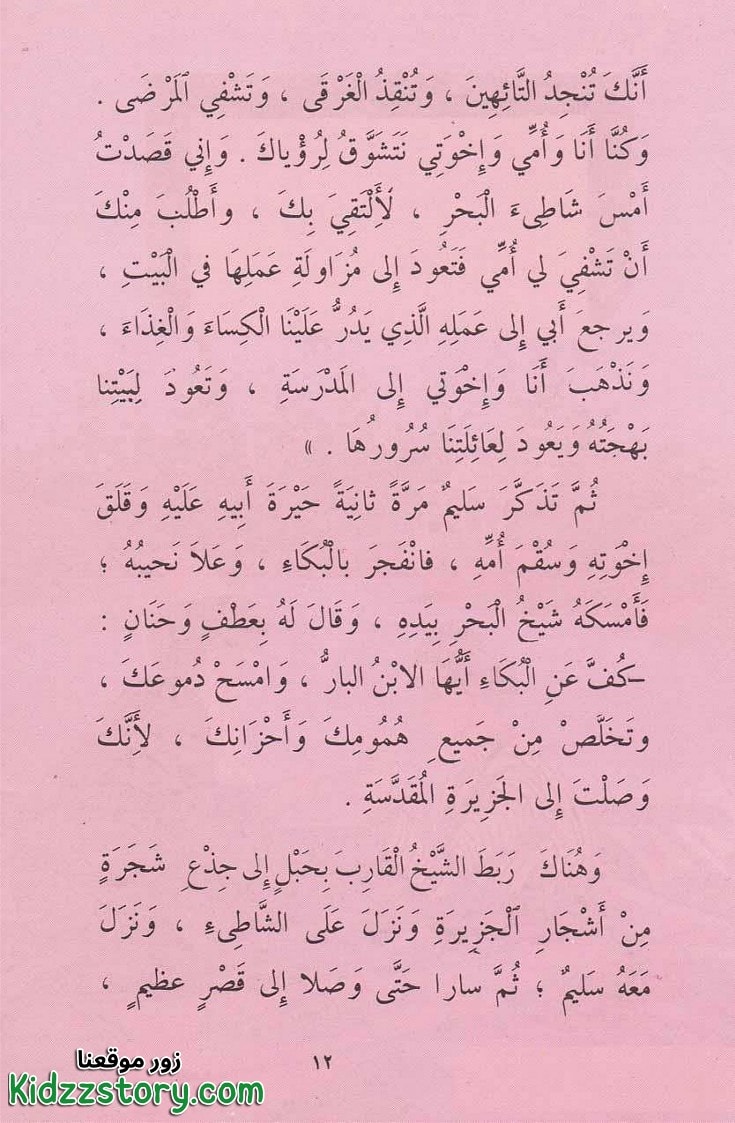 أَنَّكَ تُنْجِدُ التَّائِهِينَ ، وَتُنْقِذُ الْغَرْقَى ، وَتَشْفِي الْمَرْضَى .
وَكُنَّا أَنَا وَأُمِّي وَإِخْوَتِي نَتَشَوَّقُ لِرُؤْيَاكَ . وَإِنِي قَصَدْتُ
أَمْسَ شَاطِىءَ الْبَحْرِ ، لَأَلْتَقِيَ بِكَ ، وأَطْلُبَ مِنْكَ
أَنْ تَشْفِيَ لي أُمِّي فَتَعُودَ إِلى مُزَاوَلَةِ عَمَلِهَا في الْبَيْتِ ،
وَيرجعَ أَبي إِلى عَمَلِهِ الَّذِي يَدُرُّ عَلَيْنَا الْكِسَاءَ وَالْغِذَاءَ ،
وَنَذْهَبَ أَنَا وَإِخْوَتي إِلى المَدْرَسَةِ ، وَتَعُودَ لِبَيْتِنا
بَهْجَتُهُ وَيَعُودَ لِعَائِلَتِنَا سُرُورُهَا . »
ثُمَّ تَذَكَّرَ سَلِيمٌ مَرَّةً ثانِيَةً حَيْرَةَ أَبِيهِ عَلَيْهِ وَقَلَقَ
إِخْوَتِهِ وَسُقْمَ أُمِّهِ ، فانْفَجرَ بالْبُكَاءِ ، وَعَلاَ نَحيبُهُ ؛
فَأَمْسَكَهُ شَيْخُ الْبَحْرِ بِيَدِهِ ، وَقَالَ لَهُ بِعَطْفٍ وَحَنَانٍ :
–كُفَّ عَنِ الْبُكَاءِ أَيُّهَا الابْنُ البارُّ ، وَامْسَحْ دُموعَكَ ،
وتَخَلَّصْ مِنْ جَميعِ هُمُومِكَ وَأَحْزَانِكَ ، لأَنَّكَ
وَصَلْتَ إِلى الجَزِيرَةِ المُقَدَّسَةِ .
وَهُنَاكَ رَبَطَ الشَّيْخُ الْقَارِبَ بِحَبْلٍ إِلى جِذْعِ شَجَرَةٍ
مِنْ أَشْجَارِ الْجَزِيرَةِ وَنَزَلَ عَلَى الشَّاطِىءِ ، وَنَزَلَ
مَعَهُ سَلِيمٌ ؛ ثُمَّ سارا حَتَّى وَصَلا إِلى قَصْرٍ عظيمٍ ،
١٢
زور موقعنا
Kidzzstory.com